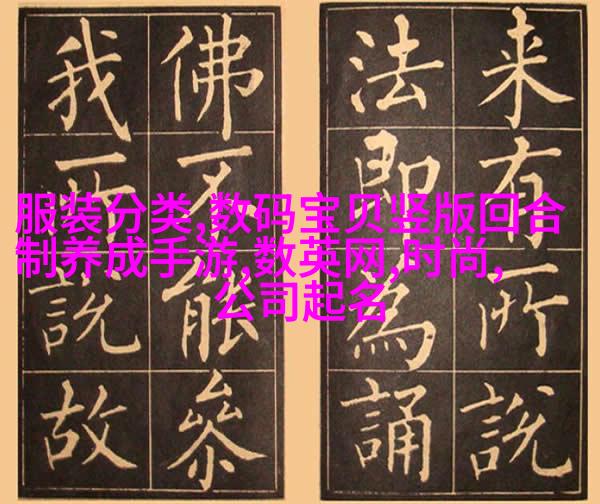 来有所説
法即為誦
佛不能叅
我所説故
服装分类,数码宝贝竖版回合
制养成手游,数英网,时尚,
公司起名